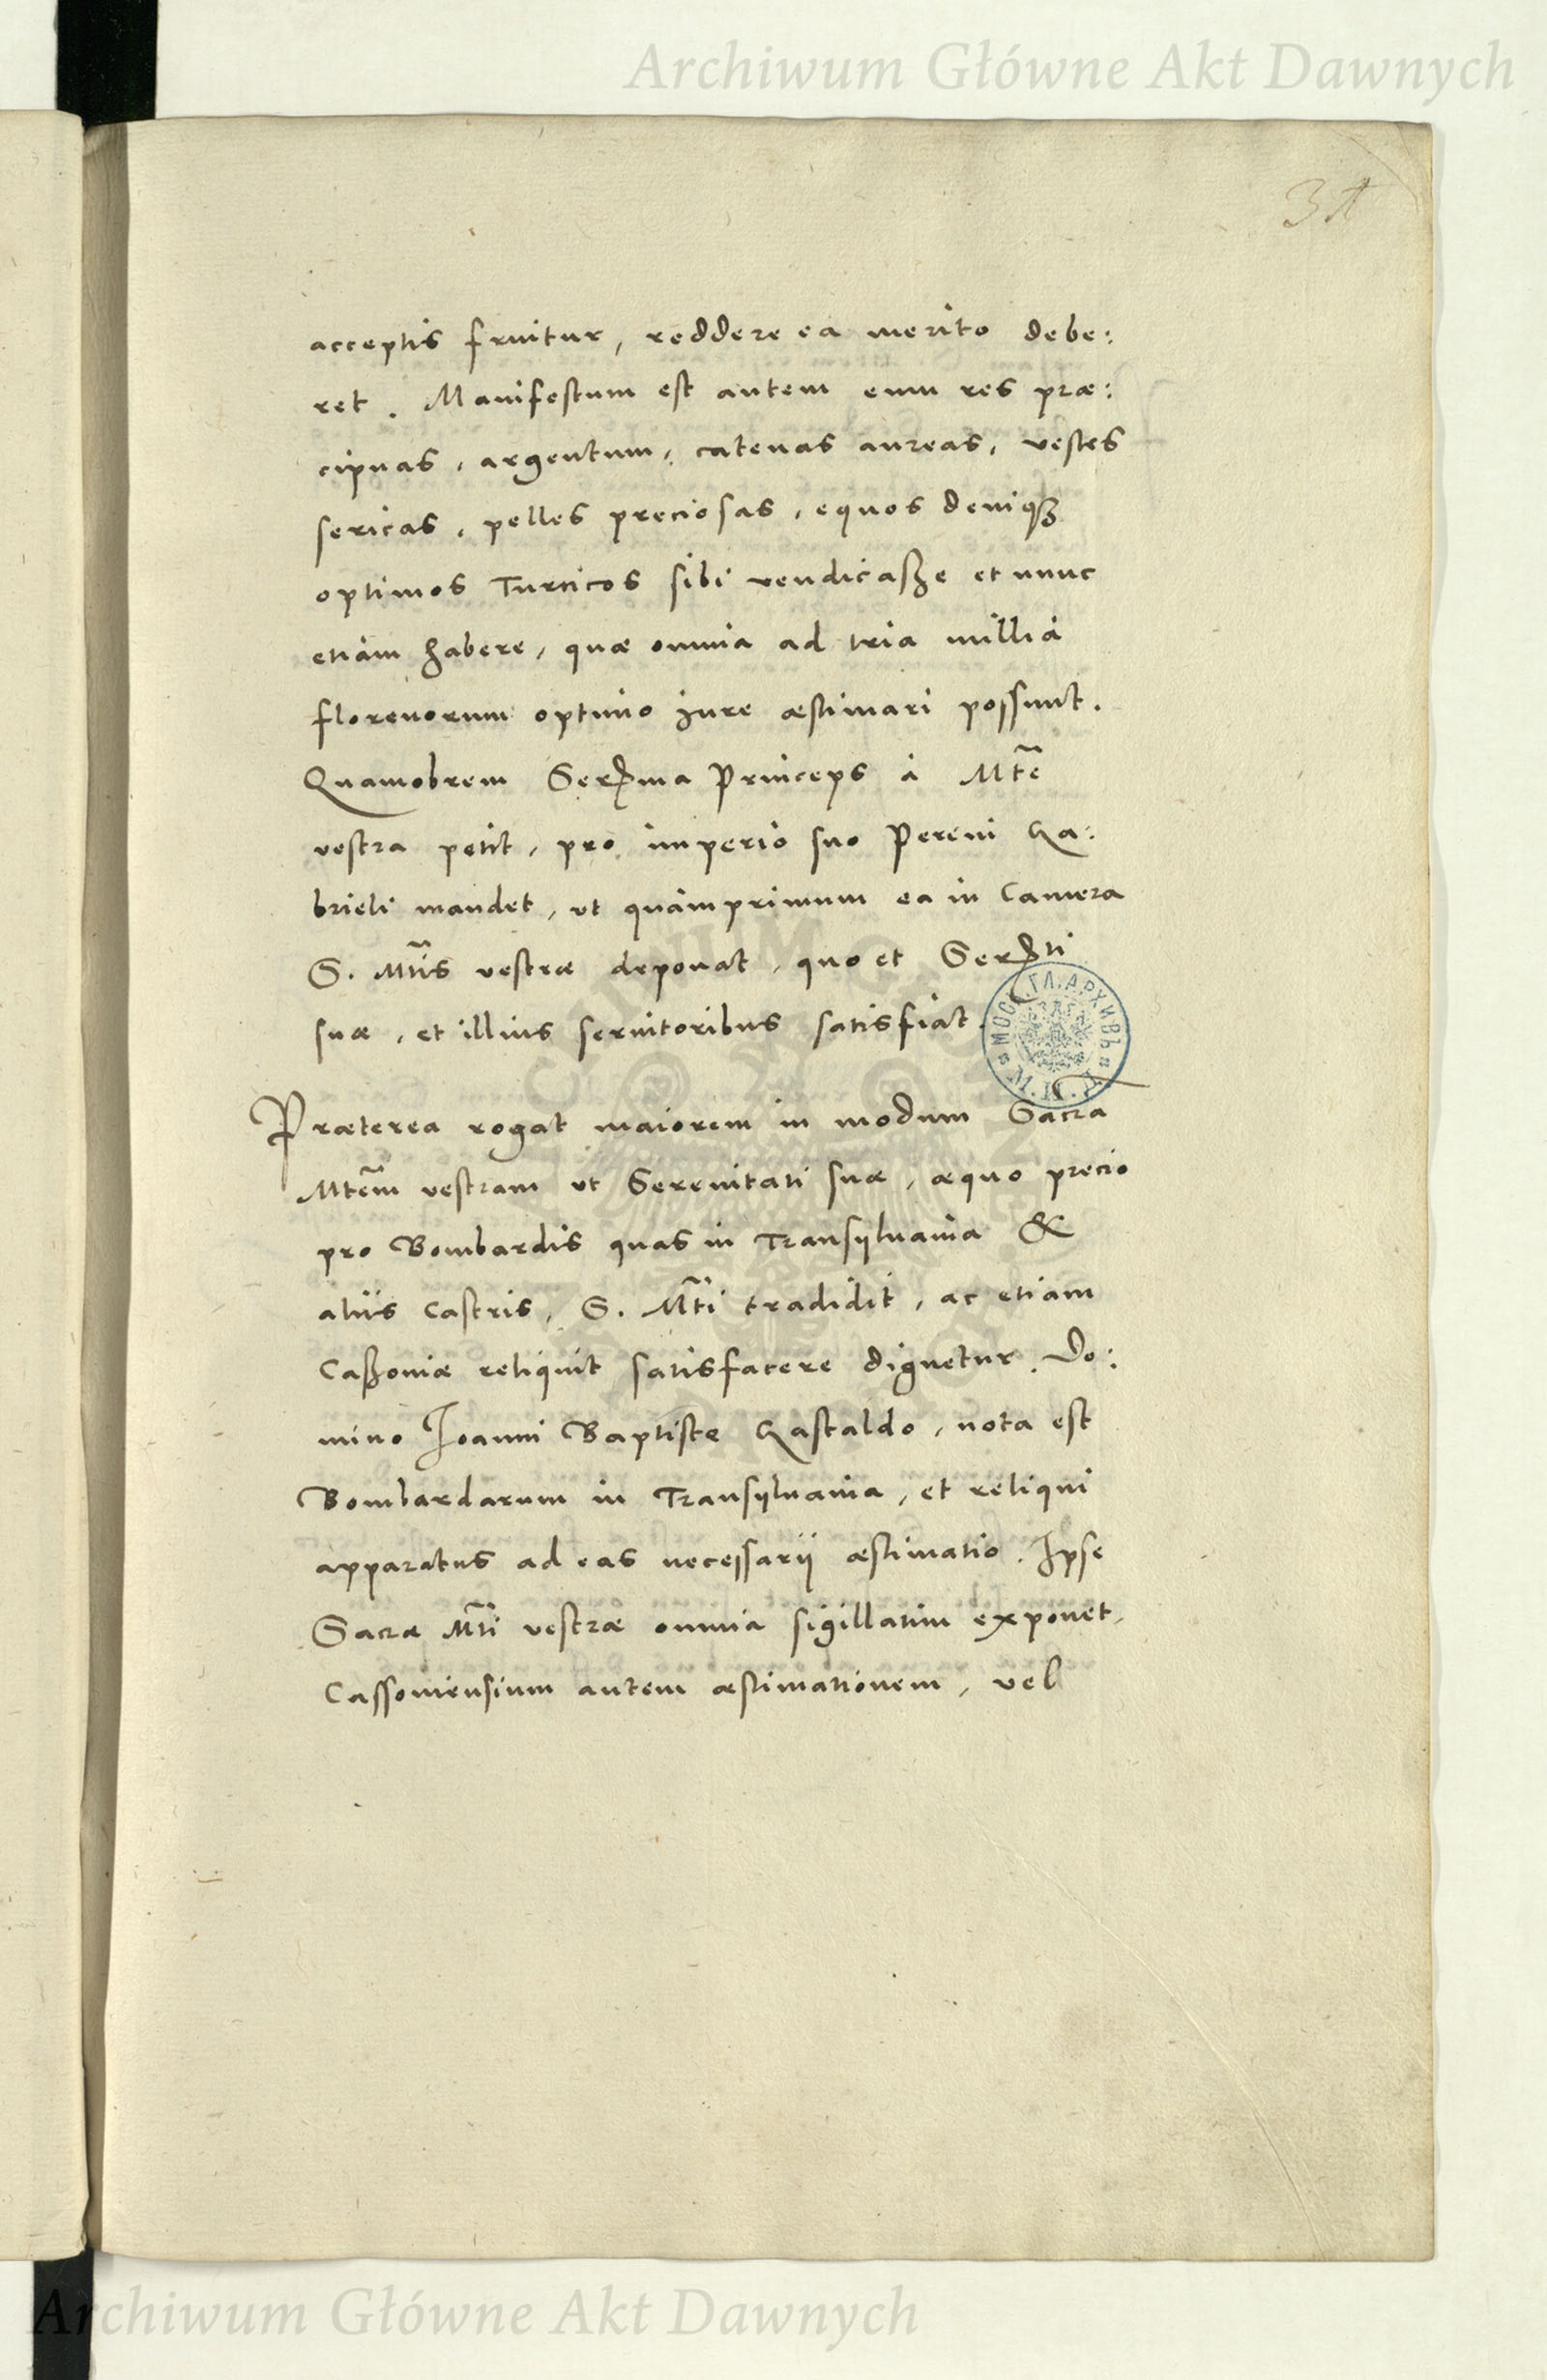 Archiwum Główne Akt Dawnych
acceptis fruitur, reddere ea merito debe:
ret. Manifestum est autem eum res præ:
cipuas, argentum, catenas aureas, vestes
sericas, pelles preciosas, equos deniqꝫ
optimos Turcicos sibi vendicaße et nunc
etiam habere, quæ omnia ad tria millia
florenorum optimo iure æstimari possunt.
Quamobrem Serma Princeps à Mte
vestra petit, pro imperio suo Pereni Ga:
brieli mandet, ut quamprimum ea in Camera
S. Mtis vestræ deponat, quo et Serti
suæ, et illius seruitoribus satisfiat.
МОСК. ГЛ. АРХИВЪ
М. И. Д.
Præterea rogat maiorem in modum Sacra
Mtem vestram ut Serenitati suæ, æquo precio
pro Bombardis quas in Transyluania &
aliis Castris, S. Mti tradidit, ac etiam
Caßoniæ reliquit satisfacere dignetur. Do:
mino Ioanni Baptistæ Gastaldo, nota est
Bombardarum in Transyluania, et reliqui
apparatus ad eas necessarij æstimatio. Ipse
Sacræ Mti vestræ omnia sigillatim exponet,
Cassoniensium autem æstimationem, vel
Archiwum Główne Akt Dawnych